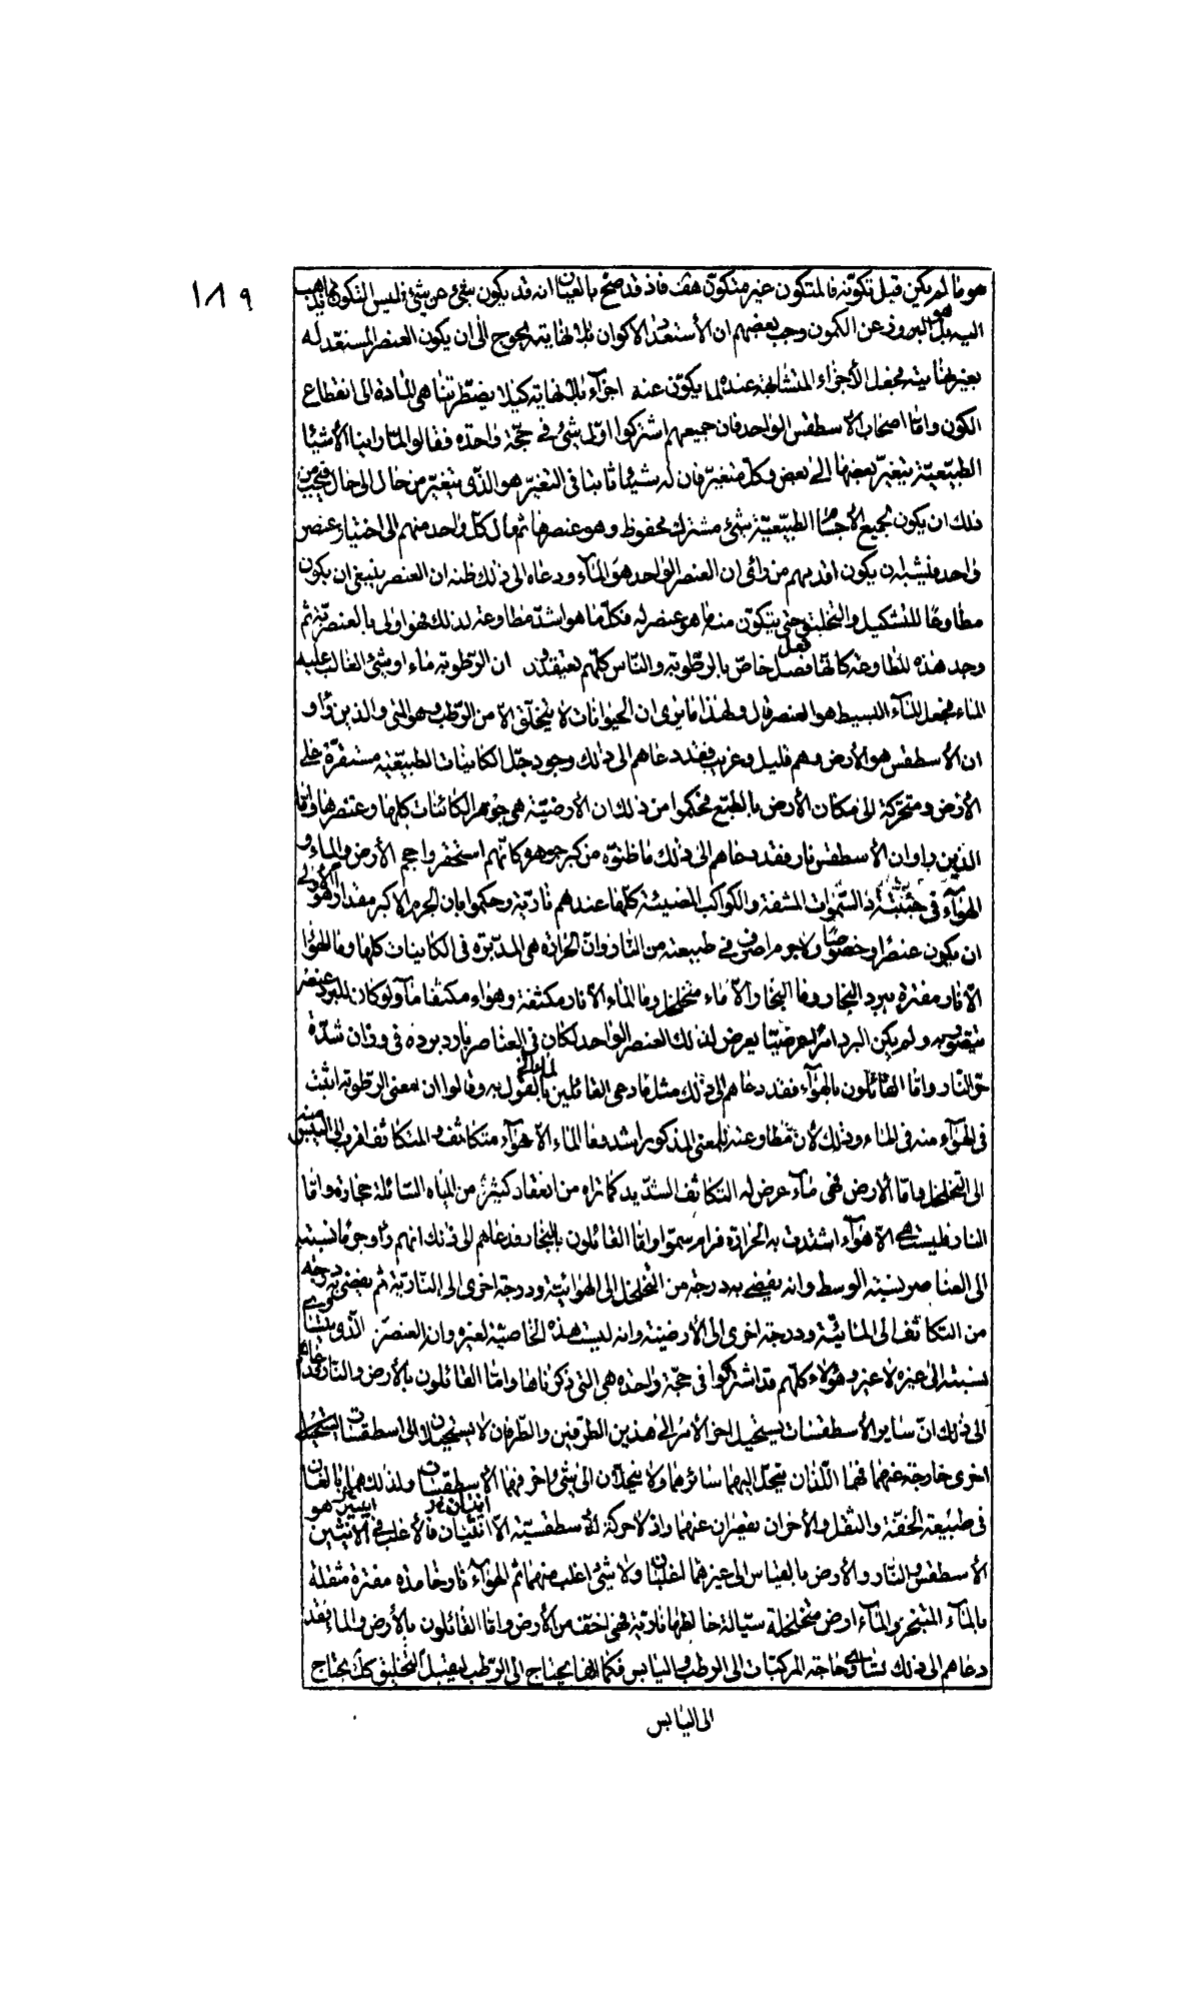 ١٨٩
هو ما لم يكن قبل تكوّنه فالمتكون غير متكوّن هف فاذ قد صح بالعيان انه قد يكون شئ عن شئ فليس التكون ما ذهب
اليه بل هو البروز عن الكمون وحب بعضهم ان الأستعداد لاكوان بلا نهاية يحوج الى ان يكون العنصر المستعد له
بغير نهاية فجعل الأجزاء المتشابهة عنده لما يكوّن عنه اجزآء بلا نهاية كيلا يضطر تناهى المادة الى انقطاع
الكون وامّا اصحاب الأسطقس الواحد فان جميعهم اشتركوا اوّل شئ فى حجّة واحدة فقالوا لمّا راينا الأشيآء
الطبيّعيّة يتغيّر بعضها الى بعض وكلّ متغيّر فان له شيئا ثابتا فى التغيّر هو الذّى يتغيّر من حال الى حال فيجب من
ذلك ان يكون لجميع الأجسام الطبيّعيّة شئ مشترك محفوظ وهو عنصرها ثم مال كلّ واحد منهم الى اختيار عنصر
واحد فيشبه ان يكون اقدمهم من رأى ان العنصر الواحد هو المآء ودعاه الى ذلك ظنه ان العنصر ينبغى ان يكون
مطاوعا للتشكيل والتخليق حتى يتكوّن منه ما هو عنصر له فكلّ ما هو اشدّ مطاوعة لذلك فهو اولى بالعنصريّة ثم
وجد هذه المطاوعة كانها فصل خاصّ بالرّطوبة والناس كلّهم يعتقدون ان الرّطوبة ماء او شئ الغالب عليه
الماء فجعل المآء البسيط هو العنصر قال ولهذا ما نرى ان الحيوانات لا يتخلّق الّا من الرّطب وهو المنى والذين رأوا
ان الأسطقس هو الأرض وهم قليل وغريب فقد دعاهم الى ذلك وجود جلّ الكاينات الطبيّعيّة مستقرّة على
الأرض ومتحرّكة الى مكان الأرض بالطّبع فحكموا من ذلك ان الأرضيّة هى جوهر الكائنات كلها وعنصرها وامّا
الذين راوا ان الأسطقس نار فقد دعاهم الى ذلك ما ظنوّه من كبر جوهره كانّهم استحقروا حجم الأرض والماء و
الهوآء فى جنبته اذ السّموات المشفة والكواكب المضيئة كلّها عندهم نارية وحكموا بان الجرم الاكبر مقدارا هو الاولى
ان يكون عنصرا وخصوصا ولا جرم اصرف فى طبيعته من النار وانّ الحرارة هى المدبّرة فى الكاينات كلها وما الهوآء
الّا نار مفترة ببرد البخار وما البخار الّا ماء متخلخل وما الماء الّا نار مكثفة وهواء مكثف ماء ولو كان للبرد عنصر
يتقوّم به ولم يكن البرد امرا عرضيّا يعرض لذلك العنصر الواحد لكان فى العناصر بارد برده فى وزان شدّة
حرّ النار وامّا القائلون بالهوآء فقد دعاهم الى ذلك مثل ما دعى القائلين بالمآء الى القول به وقالوا ان معنى الرّطوبة اثبت
فى الهوآء منه فى الماء وذلك لأن مطاوعته للمعنى المذكور اشد وما الماء الّا هوآء متكاثف والمتكاثف اقرب الى اليبس منه
الى التخلخل وامّا الأرض فهى مآء عرض له التكاثف الشّديد كما نراه من انعقاد كثير من المياه السّائلة حجارة وامّا
النار فليست هى الّا هوآء اشتدت به الحرارة فرام سموّا وامّا القائلون بالبخار فدعاهم الى ذلك انهم رأوا جرما نسبته
الى العناصر نسبة الوسط وانه يفضى به درجة من التخلخل الى الهوائيّة ودرجة اخرى الى الناريّة ثم يفضى به درجة
من التكاثف الى المائيّة ودرجة اخرى الى الأرضيّة وانه ليست هذه الخاصيّة لغيره وان العنصر هو الّذى يتساوى
نسبته الى غيره لا غير وهؤلاء كلّهم قد اشتركوا فى حجّة واحدة هى التى ذكرناها وامّا القائلون بالأرض والنار فدعاهم
الى ذلك انّ ساير الأسطقسات يستحيل اخر الأمر الى هذين الطرفين والطّرفان لا يستحيلان الى اسطقسات
اخرى خارجة عنهما فهما اللّذان يتحلّل اليهما سائرهما ولا يتحلّلان الى شئ واخر فهما الأسطقسان ولذلك هما بالغان
فى طبيعة الخفّة والثقل والأخران يقصران عنهما واذ لا حركة للأسطقسيّة الّا اثنتان فالأغلب فى الاثنتين هو
الأسطقس والنار والأرض بالقياس الى غيرهما اغلبان ولا شئ اغلب منهما ثم الهوآء نار خامدة مفترة مثقلة
بالمآء المتبخر والمآء ارض متخلخلة سيّالة خالطها نارية فهى اخف من الأرض وامّا القائلون بالأرض والماء فقد
دعاهم الى ذلك تساوى حاجة المركبات الى الرطب واليابس فكما انها يحتاج الى الرّطب ليقبل التخليق كك يحتاج
الى اليابس